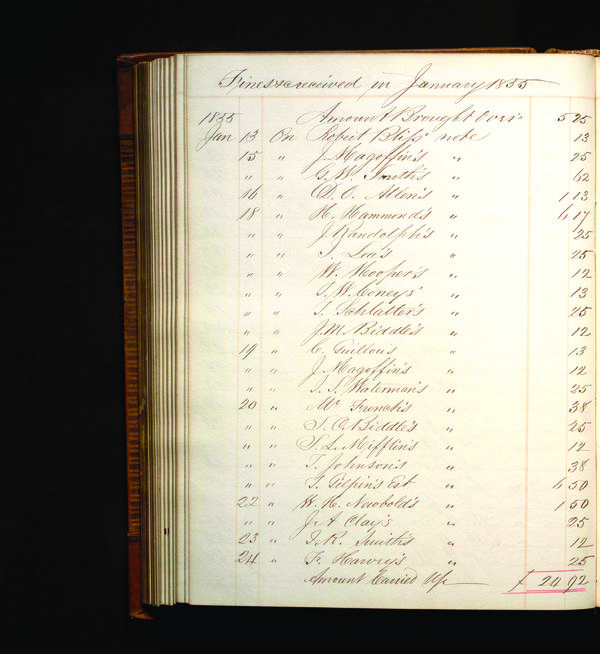 Fines &c received in January 1855
1855 Amount Brought Over 5 25
Jan 13 On Robert Bliss' note 13
15 " J. Magoffin's " 25
" " G. W. Smith's " 62
16 " D. O. Allen's " 1 13
18 " H. Hammond's " 6 17
" " J. Randolph's " 25
" " Lea's " 25
" " W. Hooper's " 12
" " W. Coney's " 13
" " Schlatter's " 25
" " J. M. Biddle's " 12
19 " C. Guillou's " 13
" " J. Magoffin's " 12
" " Waterman's " 25
20 " Mr French's " 38
" " C. Biddle's " 25
" " S. L. Mifflin's " 12
" " Johnson's " 38
" " Gilpin's Est " 6 50
22 " W. H. Newbold's " 1 50
" " J. A. Clay's " 25
23 " R. Smith's " 12
24 " F. " 25
Amount Carried Up $ 24 92